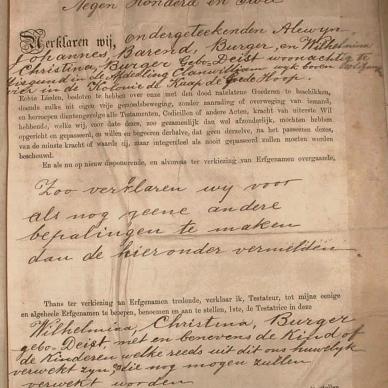 Negen Honderd en Twee
Verklaren wij, ondergeteekenden Alewyn
Johannes, Barend, Burger, en Wilhelmina
Christina, Burger Gebo=Deist, woonachtig te
in de Afdeeling Clanwilliam wyk boven Oliifant
vier in de Kolonie de Kaap de Goede Hoop.
Echte Lieden, besloten te hebben over onze met den dood natelatene Goederen te beschikken,
diende zulks uit eigen vrije gemoedsbeweging, zonder aanrading of overweging van iemand,
en herroepen dientengevolge alle Testamenten, Codicillen of andere Acten, kracht van uiterste Wil
hebbende, welke wij, voor dato dezes, zoo gezamenlijk dan wel afzonderlijk, mochten hebben
opgericht en gepasseerd, en willen en begeeren derhalve, dat geen derzelve, na het passeeren dezes,
van de minste kracht of waarde zij, maar integendeel als nooit gepasseerd zullen moeten worden
beschouwd.
En als nu op nieuw disponeerende, en alvorens ter verkiezing van Erfgenamen overgaande,
Zoo verklaren wy voor
als nog geene andere
bepalingen te maken
dan de hieronder vermelden
Thans ter verkiezing van Erfgenamen tredende, verklaar ik, Testateur, tot mijne eenige
en algeheele Erfgenamen te beroepen, benoemen en aan te stellen, 1ste, de Testatrice in deze
Wilhelmina, Christina, Burger
gebo=Deist, met en benevens de Kind of
de Kinderen welke reeds uit dit ons huwelyk
verwekt zyn, die nog mogen zullen
verwekt worden